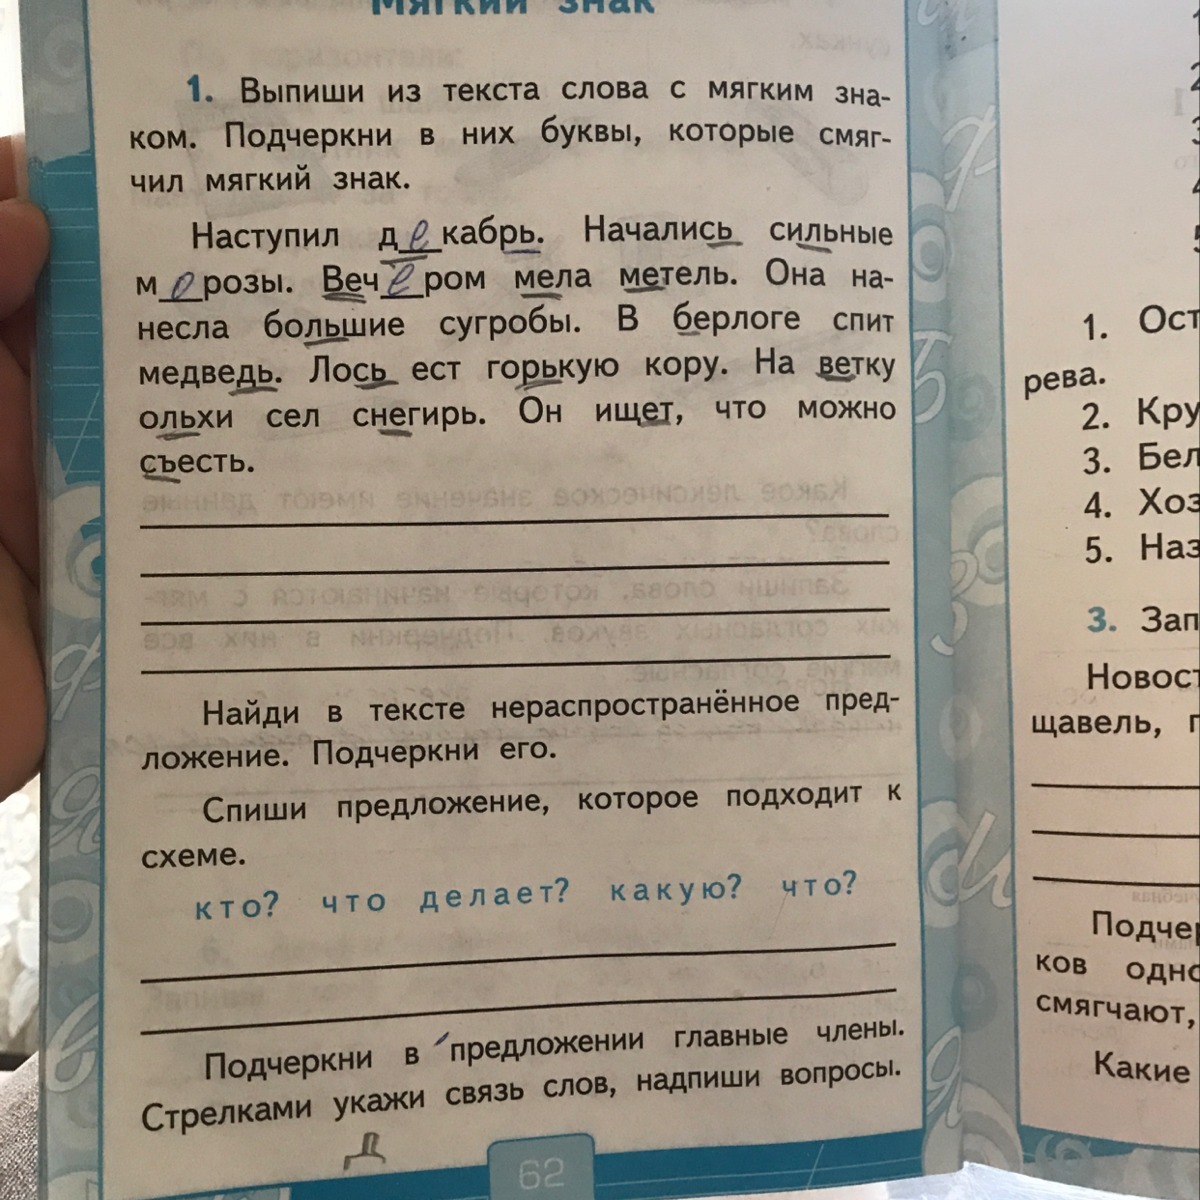 Мягкий знак
1. Выпиши из текста слова с мягким зна-
ком. Подчеркни в них буквы, которые смяг-
чил мягкий знак.
Наступил декабрь. Начались сильные
м е розы. Вечером мела метель. Она на-
несла большие сугробы. В берлоге спит
медведь. Лось ест горькую кору. На ветку
ольхи сел снегирь. Он ищет, что можно
съесть.
Найди в тексте нераспространённое пред-
ложение. Подчеркни его.
Спиши предложение, которое подходит к
схеме.
кто? что делает? какую? что?
Подчеркни в предложении главные члены.
Стрелками укажи связь слов, надпиши вопросы.
Д
62
1. Ост
рева.
2. Кру
3. Бел
4. Хоз
5. Наз
3. Зап
Новост
щавель, г
Подчер
ков одно
смягчают,
Какие